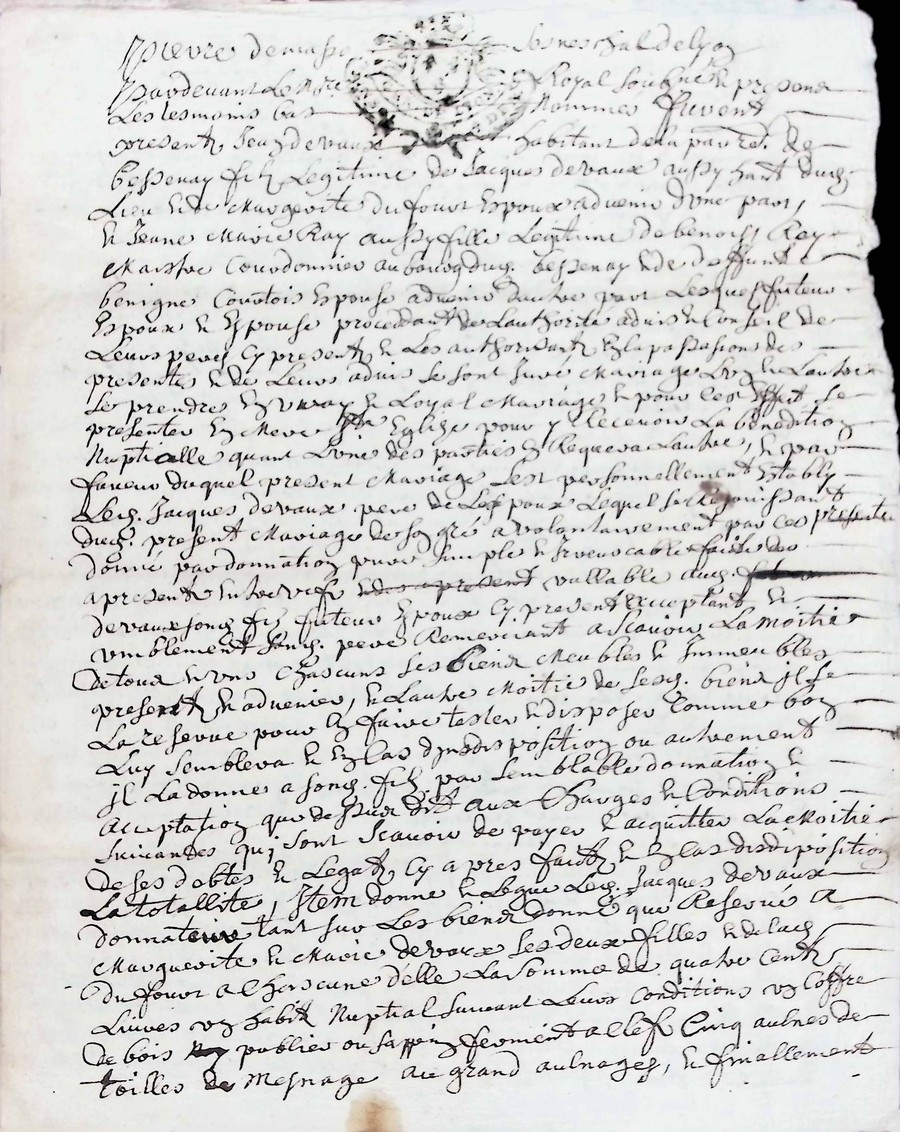 pierre demasso seneschal de lyon
Pardevant Le Nore Royal soubne & presens
Les tesmoins bas Nommes furent
presents Jean devaux habitant de la parre. de
bessenay fils Legitime de Jacques devaux aussy hant dud.
Lieu & de Margerite du four Espoux advenir d'une part,
& Jeane Marie Ray aussy fille Legitime de benoist Rey
Maistre Courdonnier au bourg dud. bessenay & de deffunte
benigne Courtois Espouse advenir dautre part Lesques futeurs
Espoux & Espouse procedant de Lauthorité advis & Conseil de
Leurs peres Cy presents & Les authorisants En la passasions des
presentes & de Leurs advis se sont juré Mariage Lun & Lautre
se prendre En vray & Loyal Mariage & pour ces Effect se
presenter En Mere Ste Eglise pour y Recevoir La benedition
Nuptialle quant Lune des parties En Requera Lautre, & par
faveur duquel present Mariage sest personnellement Estably
Led. Jacques devaux pere de Lespoux Lequel se Rejouissant
dud. present Mariage de son gré a volontairement par ces presentes
donné par donnation pure simple & Irrevocable faitte des
apresent Entre vifs & des apresent vallable aud.
devaux sond. fils futeur Espoux Cy present acceptant &
umblement sond. pere Remerciant a scavoir La Moitié
de tous & uns chascuns ses biens Meubles & Immeubles
presents & advenir, & Lautre Moitié de sesd. biens il se
La reserve pour En faire tester & disposer Comme bon
Luy semblera & En Cas d'indisposition ou autrement
il La donne a sond. fils par semblable donnation &
acceptation que dessus dit aux Charges & Conditions
suivandes qui sont scavoir de payer & acquitter La Moitié
de ses debtes & Legats Cy apres faits & En Cas dindisposition
La totallité, Item donne & Legue Led. Jacques devaux
donnateur tant sur Les biens donné que Reservé A
Marguerite & Marie devaux ses deux filles & de lad.
du four a Chascune delle La somme de quatre Cents
Livres un habit Nuptial suivant Leurs Conditions un Coffre
de bois publier ou sappin ferment a Clef Cinq aulnes de
toilles de Mesnage au grand aulnages, & finallement